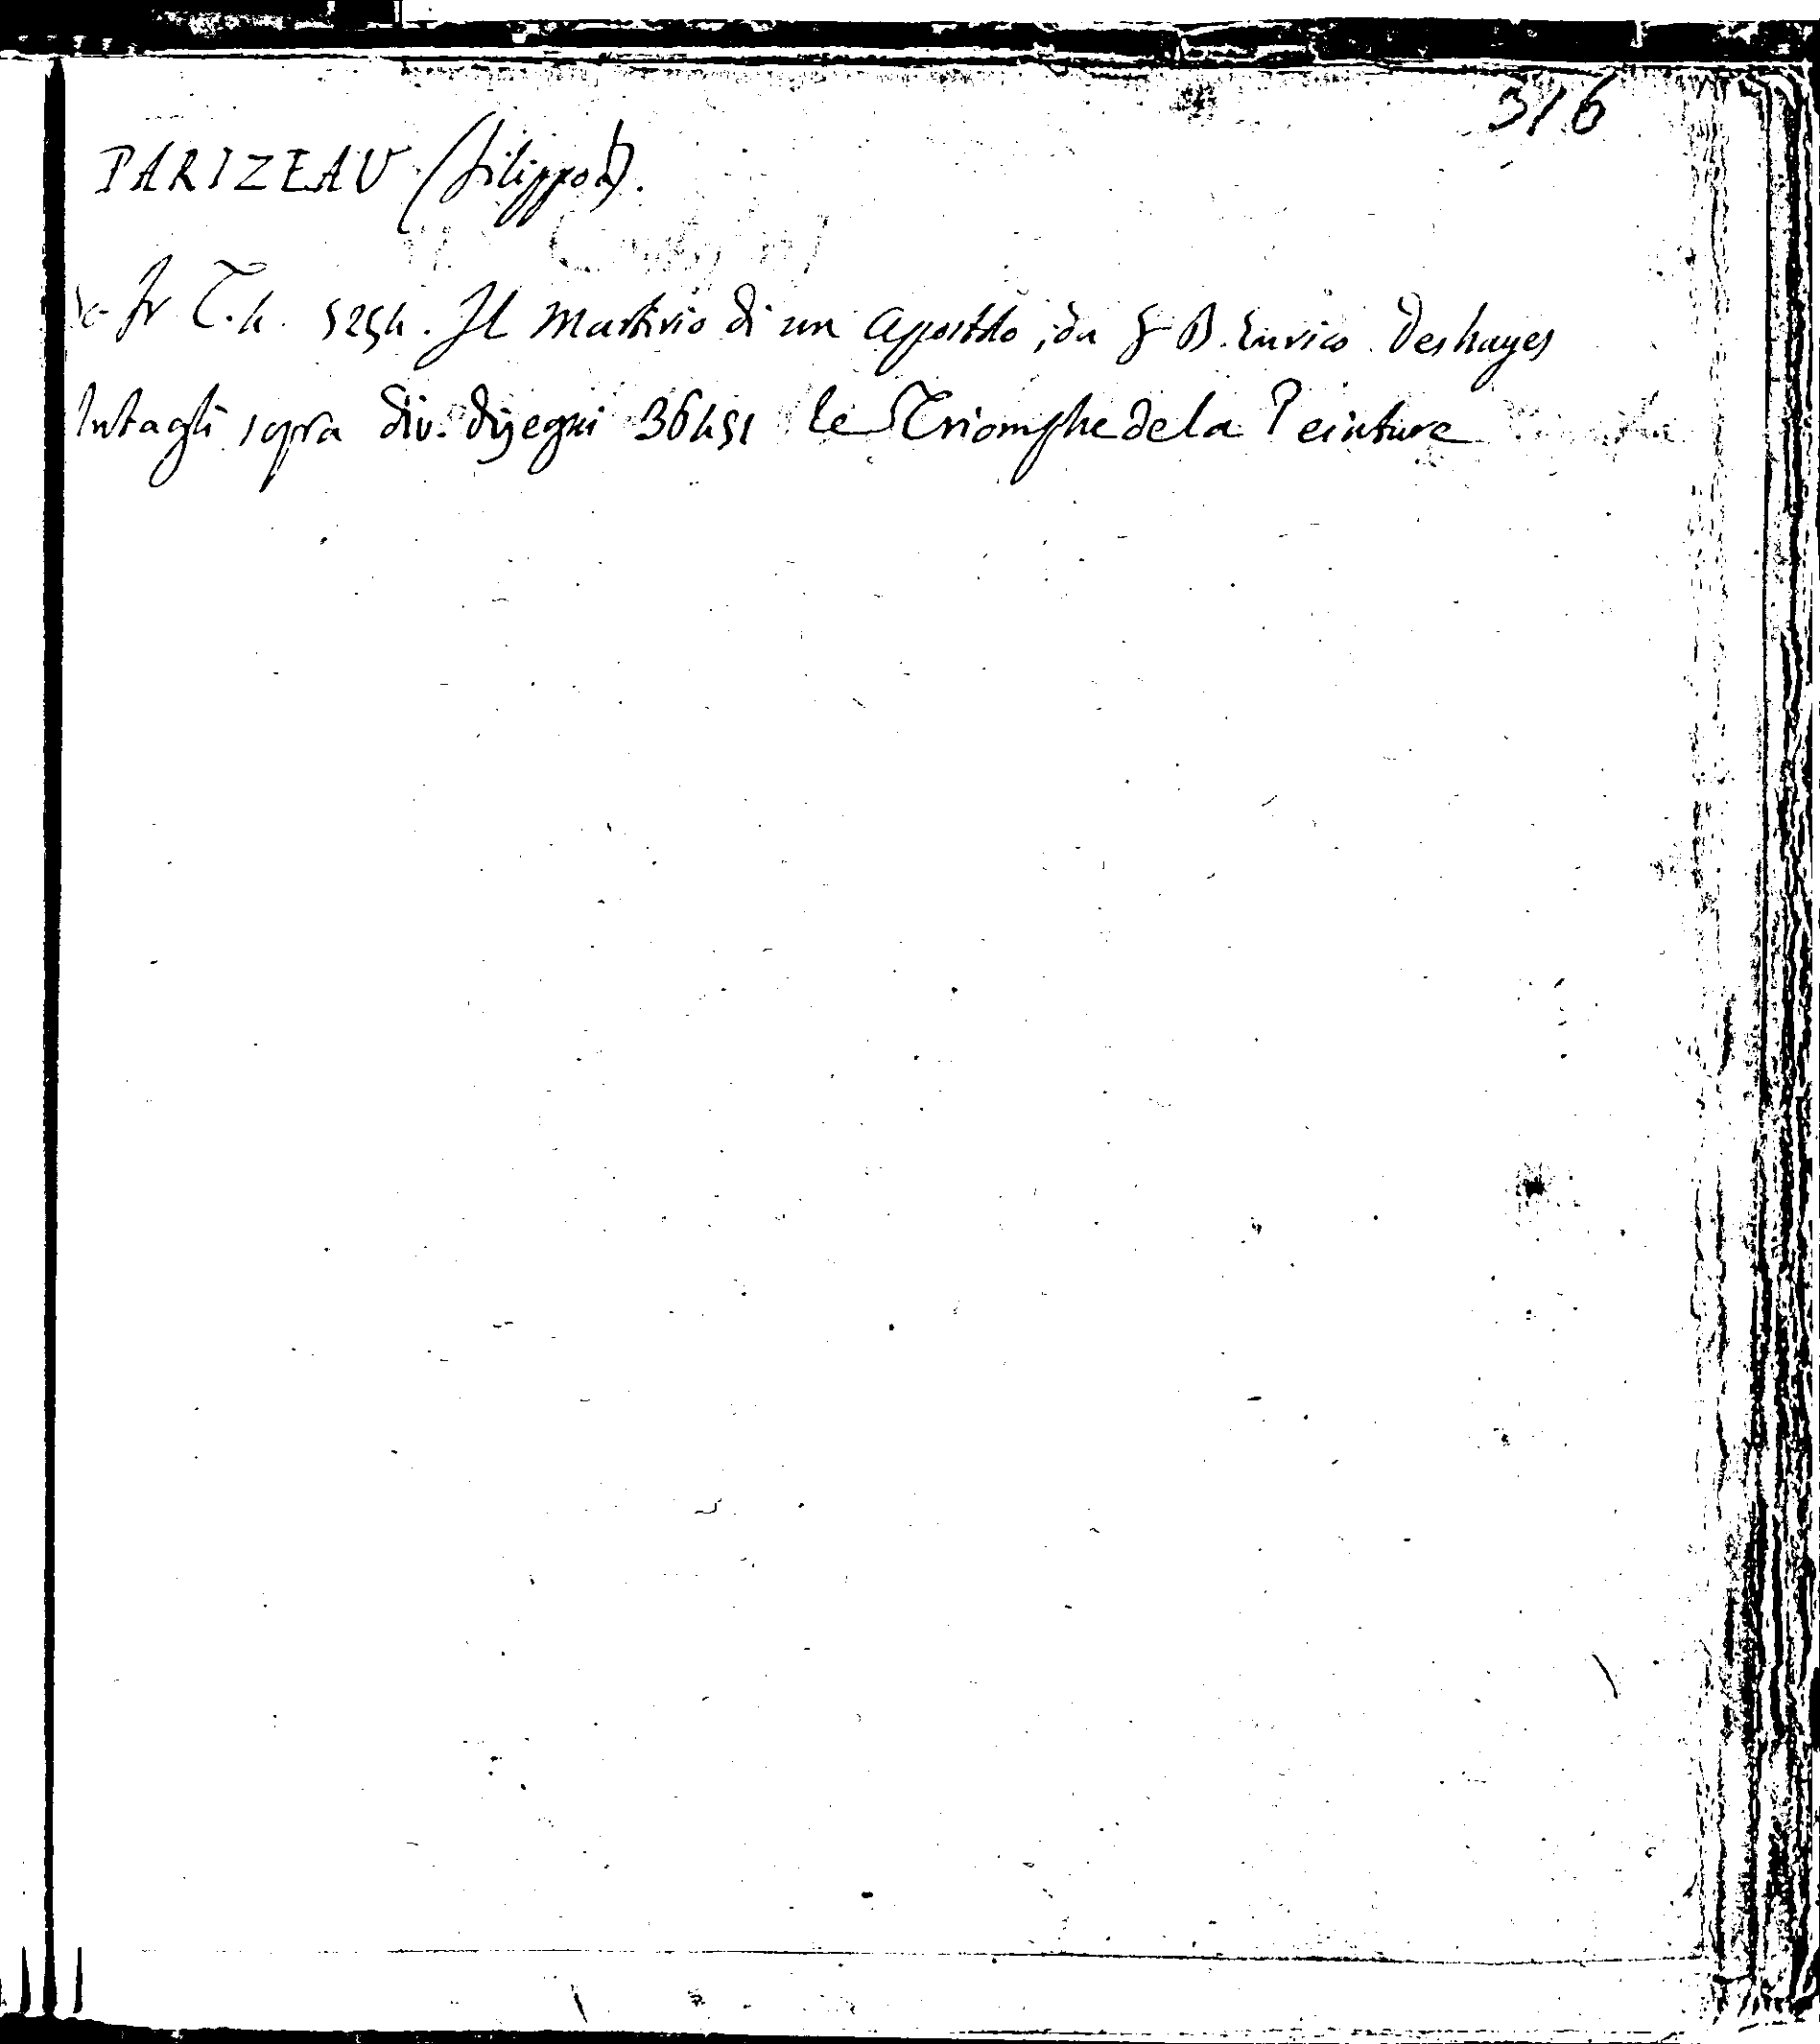 316
PARIZEAU (filippo L).
fr T. 4. 5254. Il Martirio di un Apostolo, da G B. Enrico Deshayes
Intagli sopra div. disegni 36451 le Triomphe de la Peinture